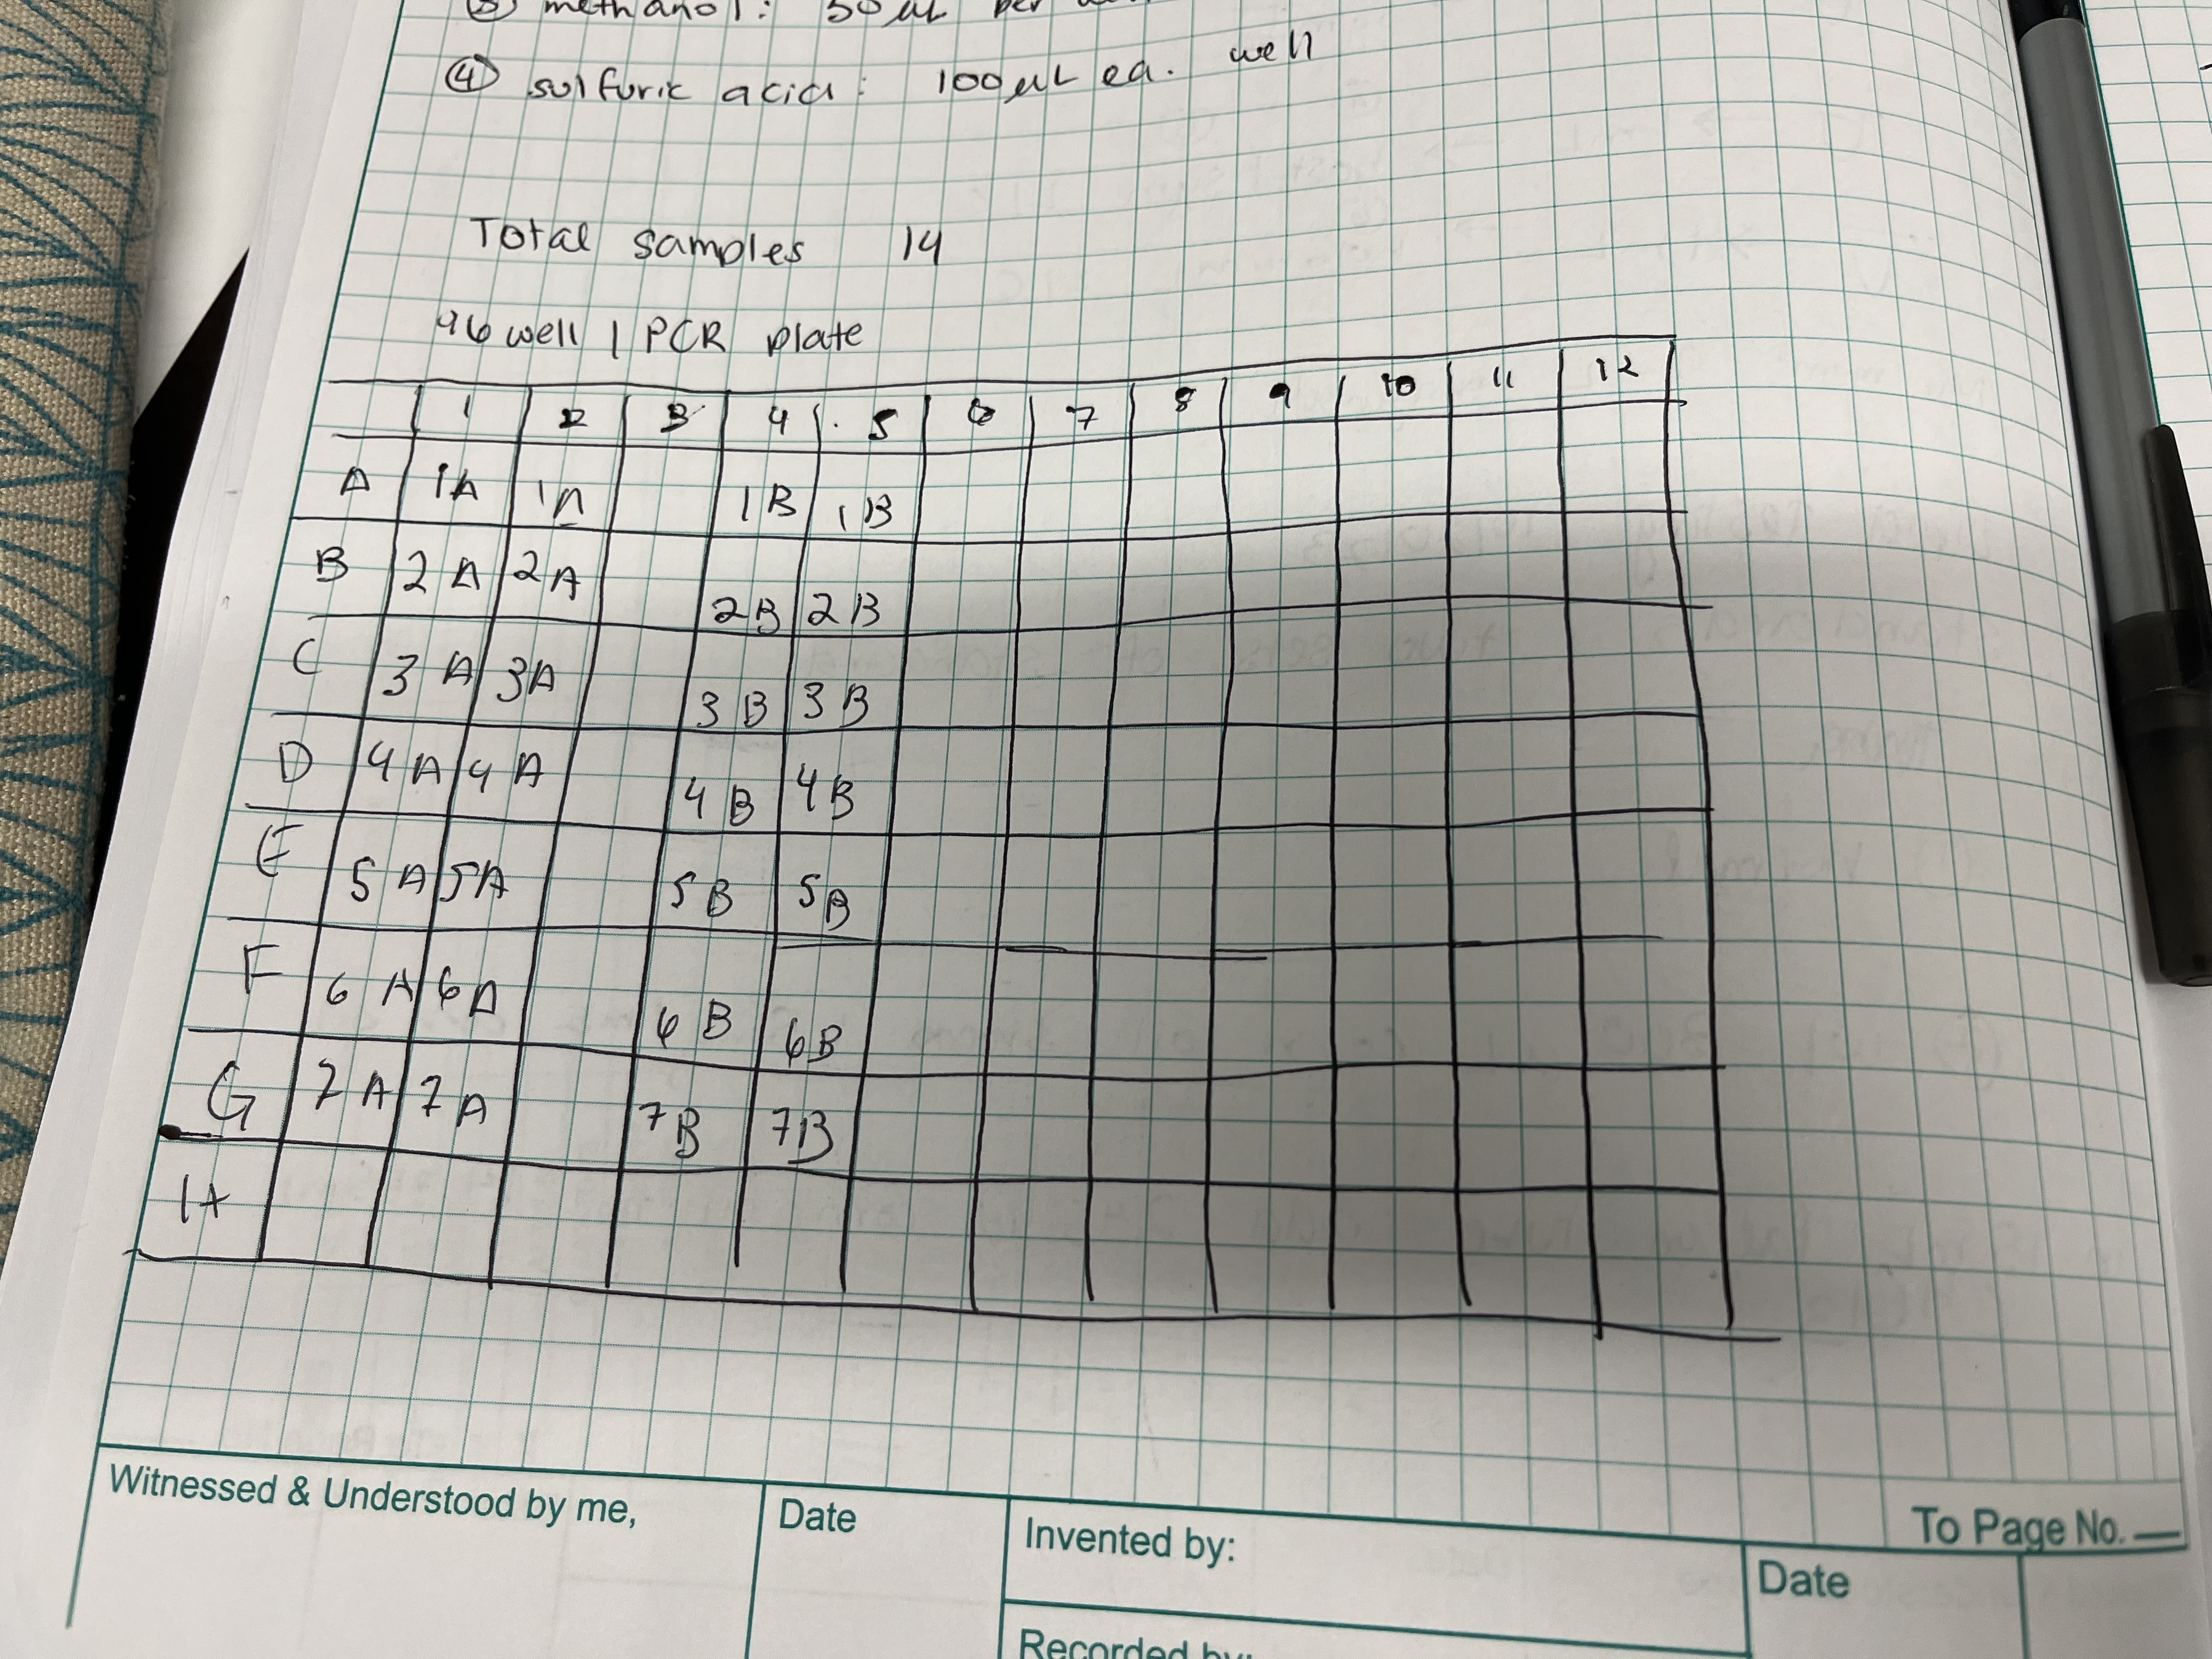 ③ methanol: 50 µL per
④ sulfuric acid: 100 µL ea. well
Total samples 14
96 well PCR plate
1 2 3 4 5 6 7 8 9 10 11 12
A 1A 1A 1B 1B
B 2A 2A 2B 2B
C 3A 3A 3B 3B
D 4A 4A 4B 4B
E 5A 5A 5B 5B
F 6A 6A 6B 6B
G 7A 7A 7B 7B
H
Witnessed & Understood by me,
Date
Invented by:
Date
Recorded by:
To Page No.